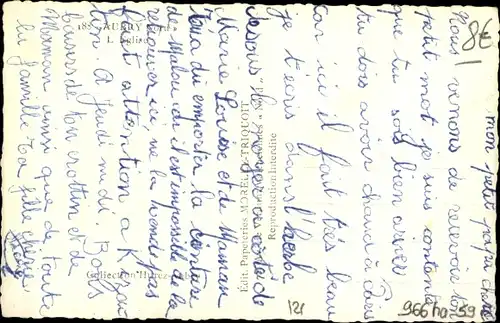 mon petit papa chéri
Nous venons de recevoir ton
petit mot je suis contente
que tu sois bien arrivé
tu dois avoir chaud à Paris
car ici il fait très beau
je t'écris dans l'herbe
dessous le à côté de
Marie Louise et de Maman
Tu as du emporter la ceinture
de Malou car il est impossible de la
retrouver ici, ne la perd pas
fait attention à
bien A jeudi midi Bons
baisers de ton trottin et de
Maman ainsi que de toute
la famille Ta fille chérie
8€
183. AUBRY
L'Église
Collection
Édit. Papeteries MOREL TRIQUOIT
Reproduction interdite
121
966 ha 59